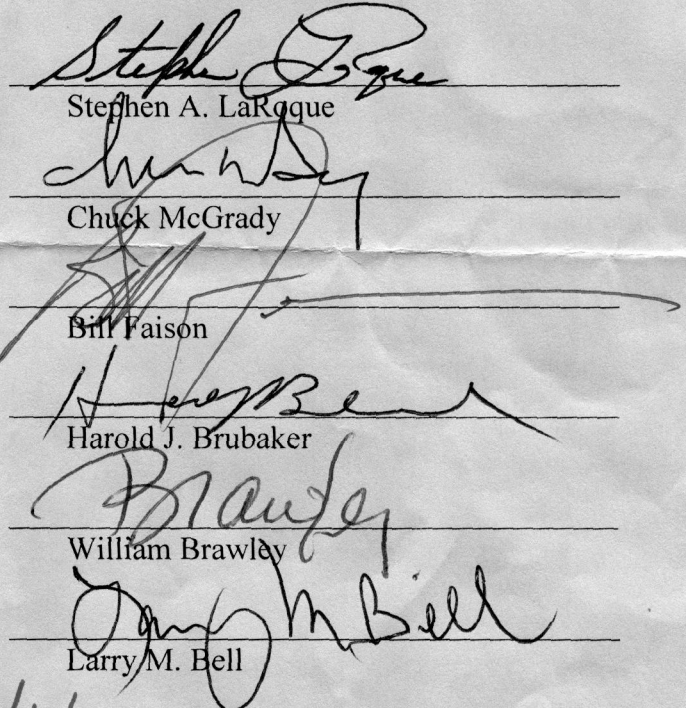 Stephen LaRoque
Stephen A. LaRoque
Chuck McGrady
Bill Faison
Harold J. Brubaker
Brawley
William Brawley
Larry M. Bell
Larry M. Bell